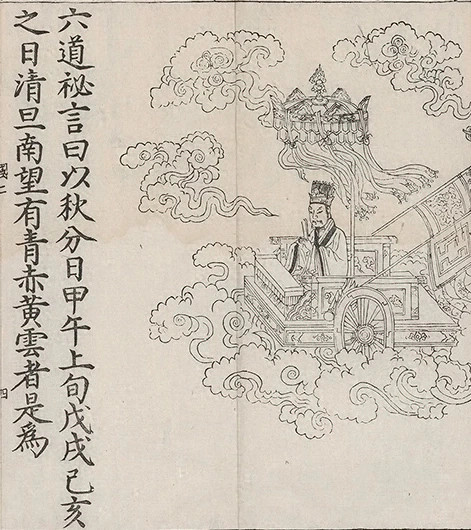 六道祕言曰以秋分日甲午上旬戊戌己亥
之日清旦南望有青赤黄雲者是爲
四